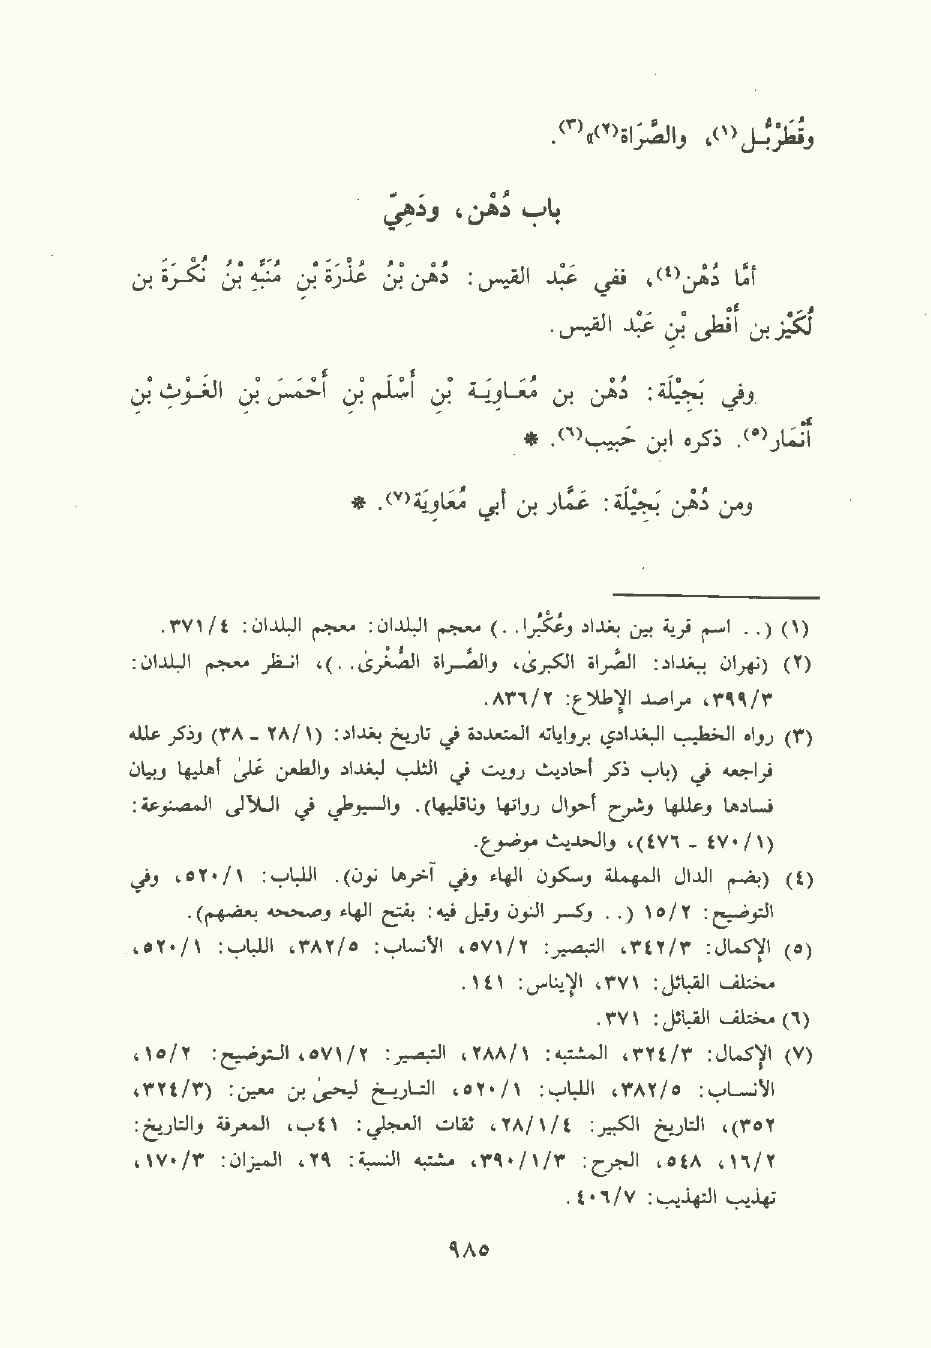 وقُطْرَبُّل(١)، والصَّرَاة(٢)»(٣).
باب دُهْن، ودَهِيّ
أمّا دُهْن(٤)، ففي عَبْد القيس: دُهْن بْنُ عُذْرَة بْنِ مُنَبِّه بْنُ نُكْرَةَ بن
لُكَيْز بن أَفْطى بْنِ عَبْد القيس.
وفي بَجِيْلَة: دُهْن بن مُعَاويَة بْنِ أَسْلَم بْنِ أَحْمَسَ بْنِ الغَوْثِ بْنِ
أَنْمَار(٥). ذكره ابن حَبيب(٦). *
ومن دُهْن بَجِيْلَة: عَمَّار بن أبي مُعَاوِيَة(٧). *
(١) (.. اسم قرية بين بغداد وعُكْبَرا..) معجم البلدان: معجم البلدان: ٤/ ٣٧١.
(٢) (نهران ببغداد: الصَّراة الكبرى، والصَّراة الصُغْرى..)، انظر معجم البلدان:
٣/ ٣٩٩، مراصد الإِطلاع: ٢/ ٨٣٦.
(٣) رواه الخطيب البغدادي برواياته المتعددة في تاريخ بغداد: (١/ ٢٨ - ٣٨) وذكر علله
فراجعه في (باب ذكر أحاديث رويت في الثلب لبغداد والطعن على أهلها وبيان
فسادها وعللها وشرح أحوال رواتها وناقليها). والسيوطي في اللآلى المصنوعة:
(١/ ٤٧٠ - ٤٧٦)، والحديث موضوع.
(٤) (بضم الدال المهملة وسكون الهاء وفي آخرها نون). اللباب: ١/ ٥٢٠، وفي
التوضيح: ٢/ ١٥ (.. وكسر النون وقيل فيه: بفتح الهاء وصححه بعضهم).
(٥) الإِكمال: ٣/ ٣٤٢، التبصير: ٢/ ٥٧١، الأنساب: ٥/ ٣٨٢، اللباب: ١/ ٥٢٠،
مختلف القبائل: ٣٧١، الإِيناس: ١٤١.
(٦) مختلف القبائل: ٣٧١.
(٧) الإِكمال: ٣/ ٣٢٤، المشتبه: ١/ ٢٨٨، التبصير: ٢/ ٥٧١، التوضيح: ٢/ ١٥،
الأنساب: ٥/ ٣٨٢، اللباب: ١/ ٥٢٠، التاريخ ليحيى بن معين: (٣/ ٣٢٤،
٣٥٢)، التاريخ الكبير: ٤/ ١/ ٢٨، ثقات العجلي: ٤١ب، المعرفة والتاريخ:
٢/ ١٦، ٥٤٨، الجرح: ٣/ ١/ ٣٩٠، مشتبه النسبة: ٢٩، الميزان: ٣/ ١٧٠،
تهذيب التهذيب: ٧/ ٤٠٦.
٩٨٥